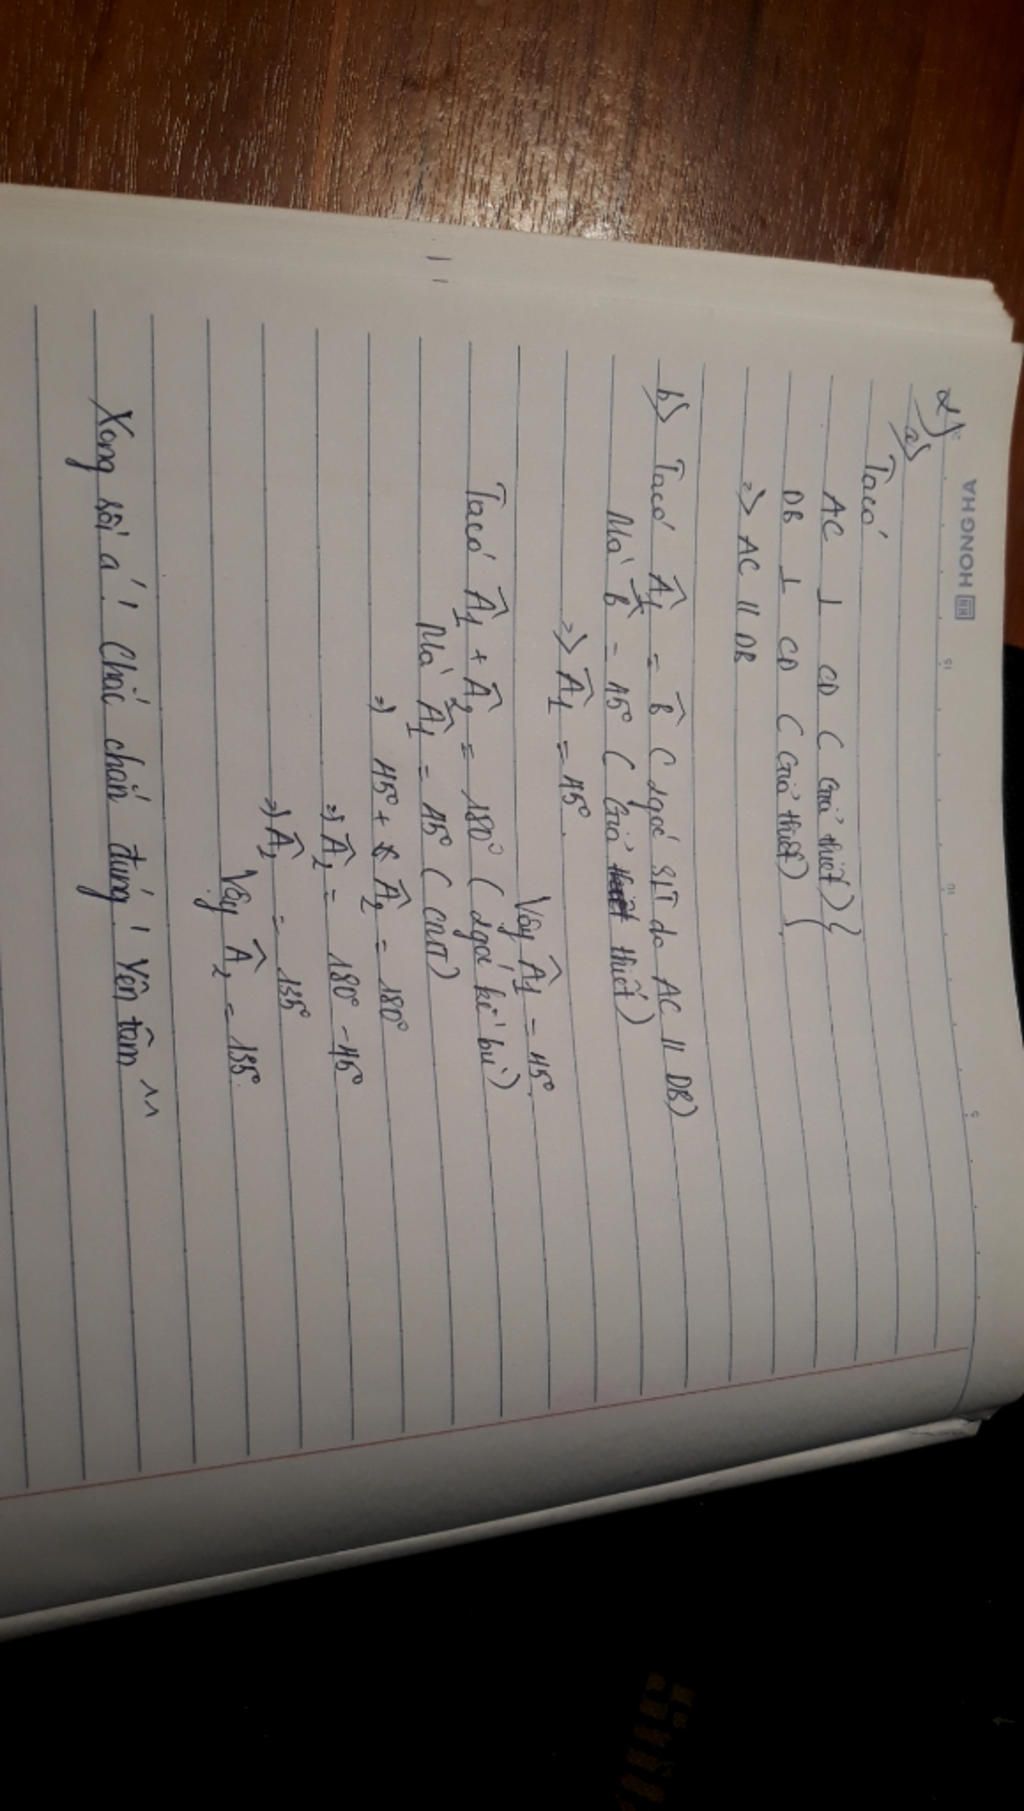 HONG HA
2)
a)
Ta có
AC ⊥ CD ( Giả thiết) }
DB ⊥ CD ( Giả thiết)
=> AC // DB
b) Ta có Â1 = B̂ ( 2 góc SLT do AC // DB)
Mà B̂ = 45° ( Giả thiết)
=> Â1 = 45°.
Vậy Â1 = 45°.
Ta có Â1 + Â2 = 180° ( 2 góc kề bù)
Mà Â1 = 45° ( CMT)
=> 45° + Â2 = 180°
=> Â2 = 180° - 45°
=> Â2 = 135°
Vậy Â2 = 135°.
Xong rồi á! Chắc chắn đúng! Yên tâm ^^